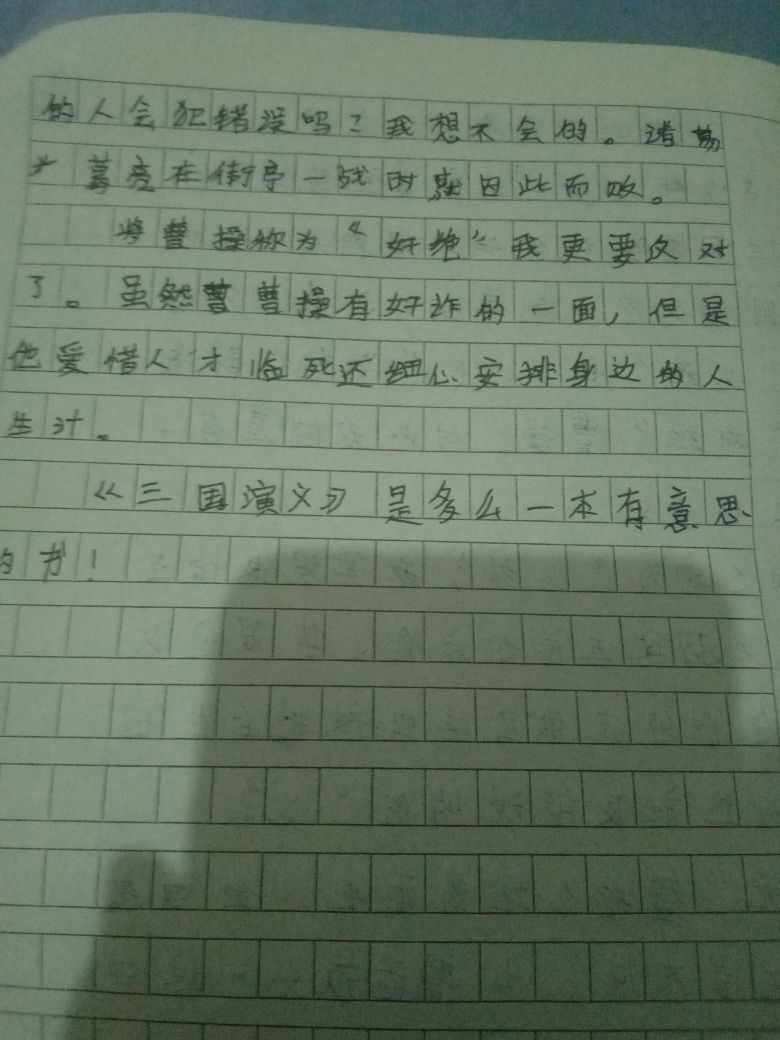 的人会犯错误吗？我想不会的。诸
葛亮在街亭一战时就因此而败。
将曹操称为“奸绝”我更要反对
了。虽然曹操有奸诈的一面，但是
他爱惜人才临死还细心安排身边的人
生计。
《三国演义》是多么一本有意思
的书！